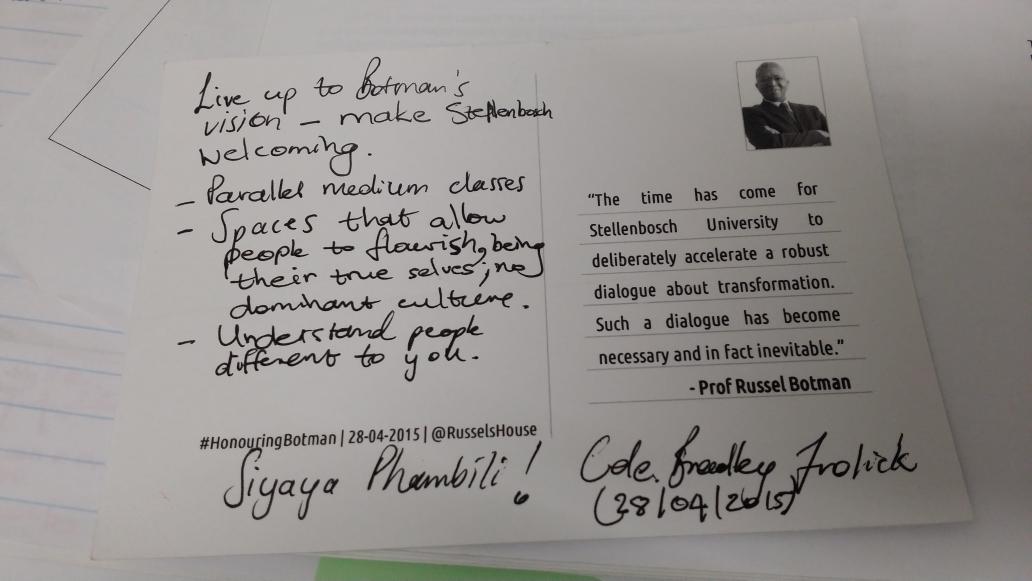 Live up to Botman's
vision – make Stellenbosch
welcoming.
– Parallel medium classes
– Spaces that allow
people to flourish, being
their true selves; no
dominant culture.
– Understand people
different to you.
#HonouringBotman | 28-04-2015 | @RusselsHouse
Siyaya Phambili!
“The time has come for
Stellenbosch University to
deliberately accelerate a robust
dialogue about transformation.
Such a dialogue has become
necessary and in fact inevitable.”
- Prof Russel Botman
Cde. Bradley Frolick
(28/04/2015)